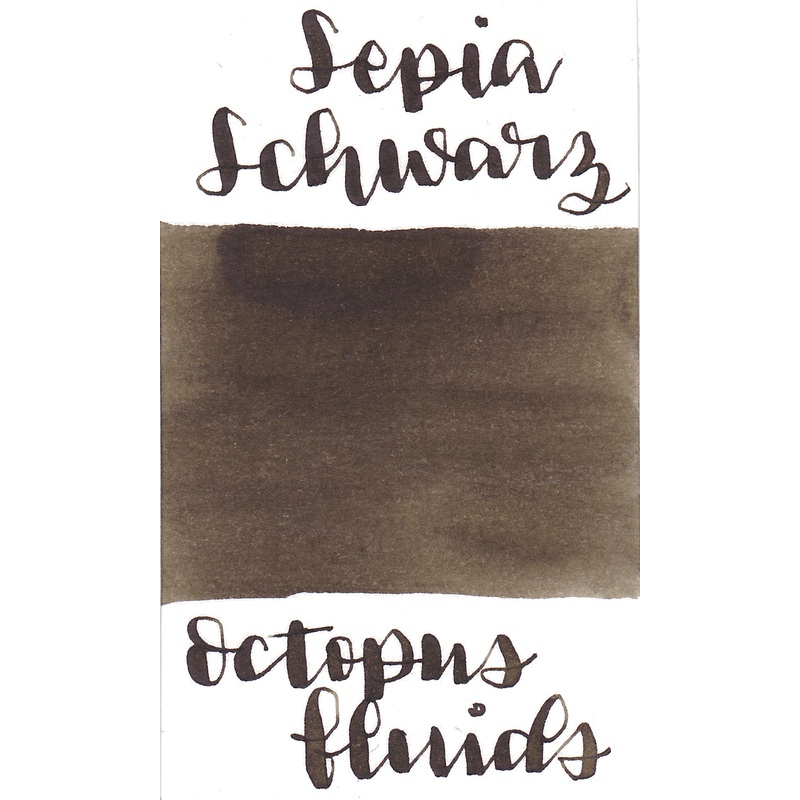 Sepia
Schwarz
Octopus
fluids